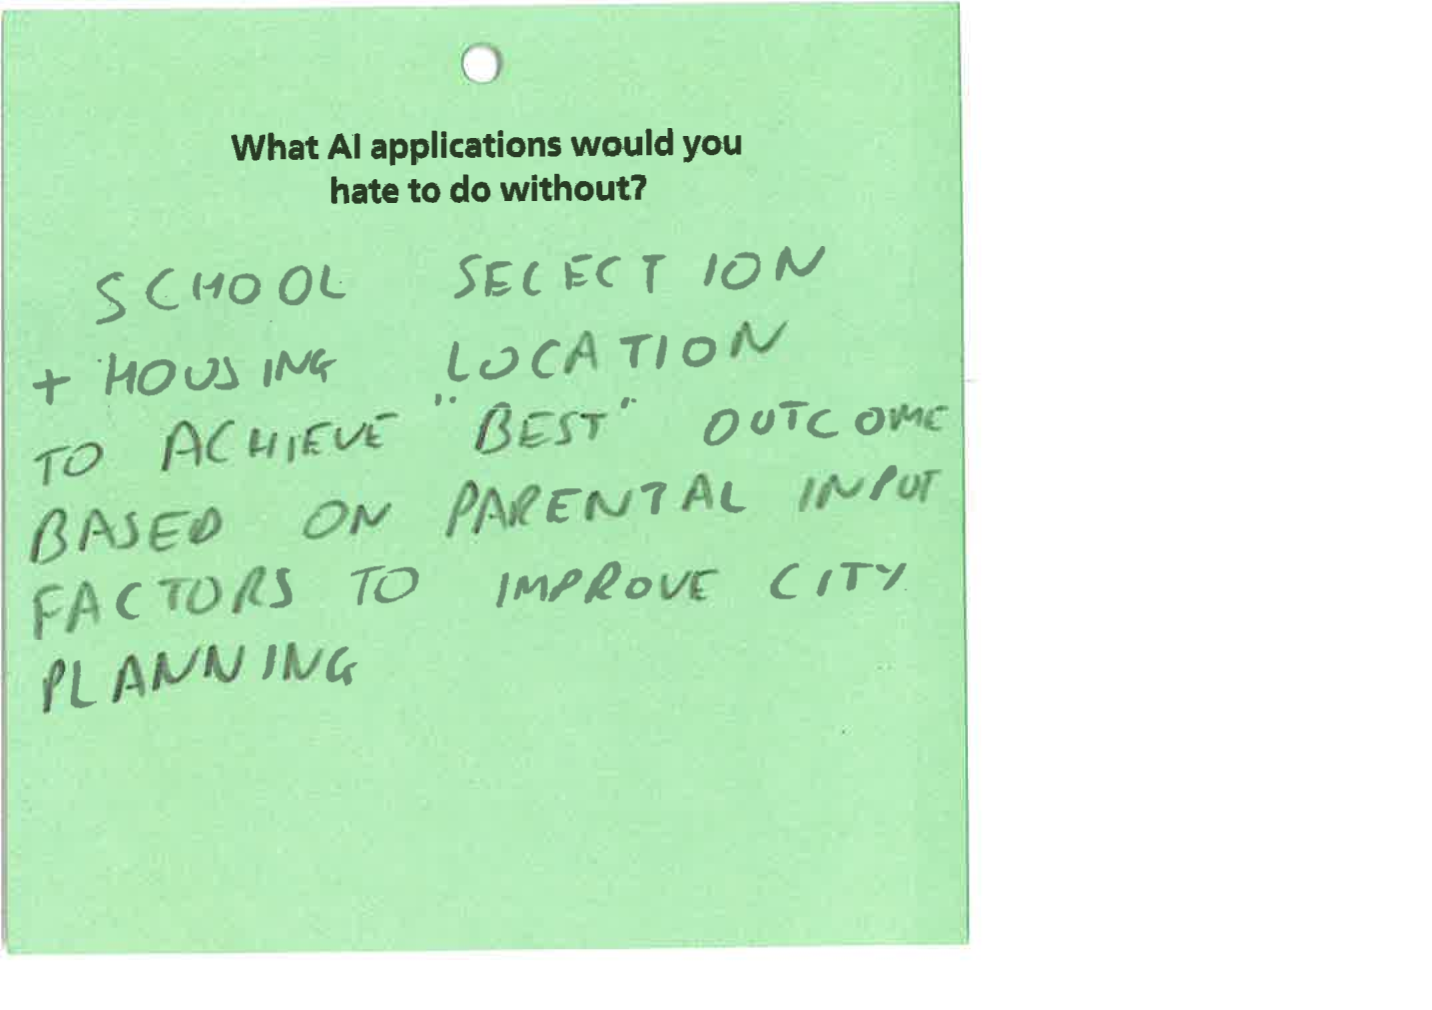 What AI applications would you
hate to do without?
SCHOOL SELECTION
+ HOUSING LOCATION
TO ACHIEVE "BEST" OUTCOME
BASED ON PARENTAL INPUT
FACTORS TO IMPROVE CITY
PLANNING